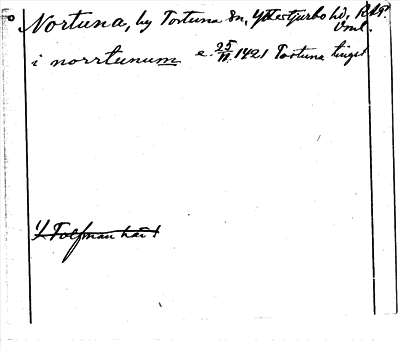 Nortuna, by Tortuna sn, Yttertjurbo hd, RAP.
Vml.
i norrtunum e. 25/11 1421 Tortuna tinget